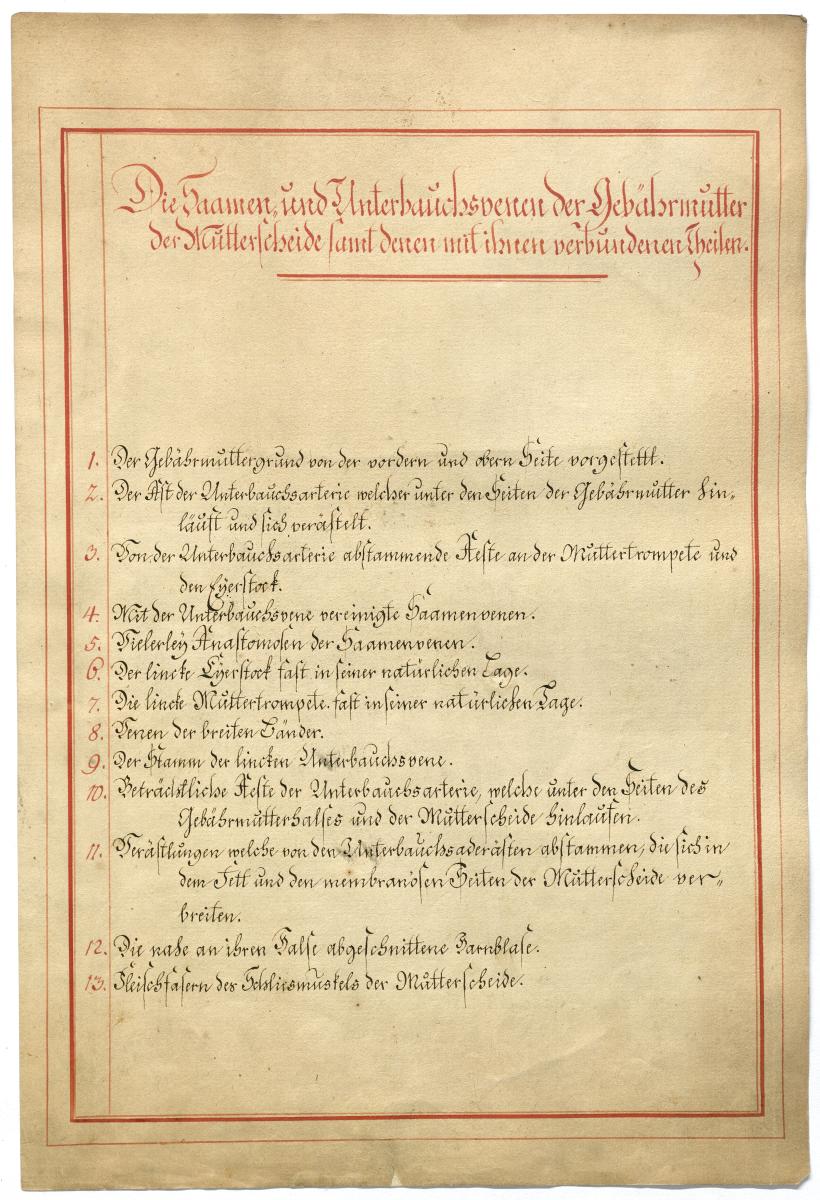 Die Saamen, und Unterbauchsvenen der Gebährmutter
der Mutterscheide samt denen mit ihnen verbundenen Theilen.
1. Der Gebährmuttergrund von der vordern und obern Seite vorgestellt.
2. Der Ast der Unterbauchsarterie welcher unter den Seiten der Gebährmutter hin„
läuft und sich verästelt.
3. Von der Unterbauchsarterie abstammende Aeste an der Muttertrompete und
den Eyerstock.
4. Mit der Unterbauchsvene vereinigte Saamenvenen.
5. Vielerley Anastomosen der Saamenvenen.
6. Der lincke Eyerstock fast in seiner natürlichen Lage.
7. Die lincke Muttertrompete fast in seiner natürlichen Lage.
8. Venen der breiten Bänder.
9. Der Stamm der lincken Unterbauchsvene.
10. Beträchtliche Aeste der Unterbauchsarterie, welche unter den Seiten des
Gebährmutterhalses und der Mutterscheide hinlaufen.
11. Verästlungen welche von den Unterbauchsaderästen abstammen, die sich in
dem Fett und den membranösen Seiten der Mutterscheide ver„
breiten.
12. Die nahe an ihren Halse abgeschnittene Harnblase.
13. Fleischfasern des Schliesmuskels der Mutterscheide.